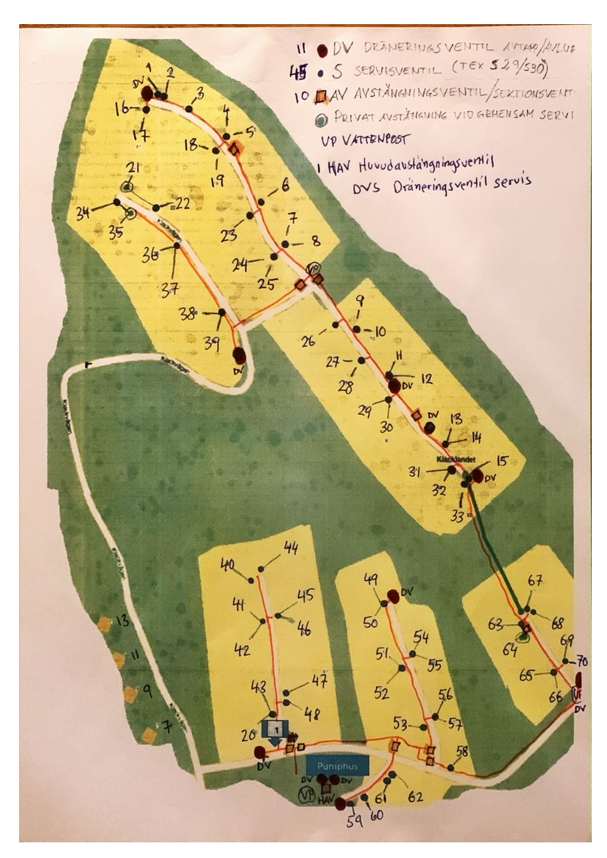 11 DV DRÄNERINGSVENTIL AVTAPP/AVLUF
45 S SERVISVENTIL (TEX S29/S30)
10 AV AVSTÄNGNINGSVENTIL/SEKTIONSVENT
PRIVAT AVSTÄNGNING VID GEMENSAM SERVI
VP VATTENPOST
1 HAV Huvudavstängningsventil
DVS Dräneringsventil servis
1
2
DV
3
16
17
4
5
18
19
21
22
6
34
35
23
7
8
36
24
25
VP
37
9
38
10
26
39
27
11
DV
28
12
DV
29
DV
30
13
14
Klacklandet
31
15
32
DV
33
44
40
49
DV
67
45
50
41
68
46
63
13
42
64
69
54
11
51
55
70
65
47
52
66
9
43
56
VP
48
DV
7
53
57
20
1
58
DV
Pumphus
DV
DV
61
62
VP
HAV
60
59